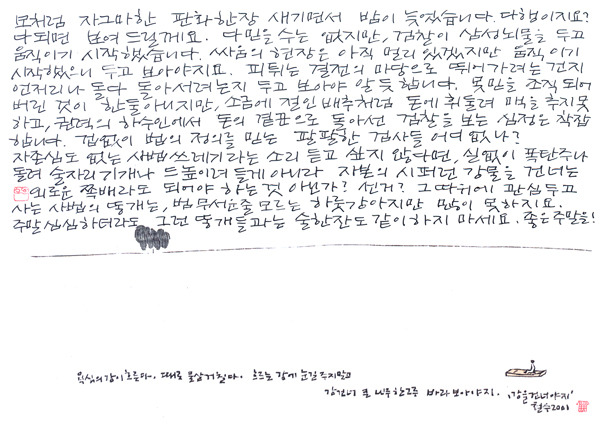 모처럼 자그마한 판화한장 새기면서 밤이 늦었습니다. 다행이지요?
다되면 보여 드릴께요. 다 믿을수는 없지만, 검찰이 삼성뇌물을 두고
움직이기 시작했습니다. 싸움의 현장은 아직 멀리 있겠지만 움직이기
시작했으니 두고 보아야지요. 피튀는 결전의 마당으로 뛰어가려는 건지
언저리나 돌다 돌아서려는지 두고 보아야 알 듯합니다. 못믿을 조직 되어
버린 것이 한둘아니지만, 소금에 절인 배추처럼 돈에 휘둘려 맥을 추지못
하고, 권력의 하수인에서 돈의 졸개으로 돌아선 검찰을 보는 심정은 착잡
합니다. 겁없이 법의 정의를 믿는 팔팔한 검사들 어디 없나?
자존심도 없는 사법쓰레기라는 소리 듣고 싶지 않다면, 실없이 폭탄주나
돌려 술자리기개나 드높이려 들게 아니라 자본의 시퍼런 강물을 건너는
외로운 쪽배라도 되어야 하는것 아닌가? 선거? 그따위에 관심두고
사는 사법의 똥개는, 범 무서운줄 모르는 하룻강아지만 못하지요.
주말 심심하더라도 그런 똥개들과는 술한잔도 같이하지 마세요. 좋은주말을!
욕심의강이흐른다. 때로 물살거칠다. 흐르는 강에 눈길 주지말고
강건너 푸른 나무한그루 바라보아야지. '강을건너야지'
철수2001